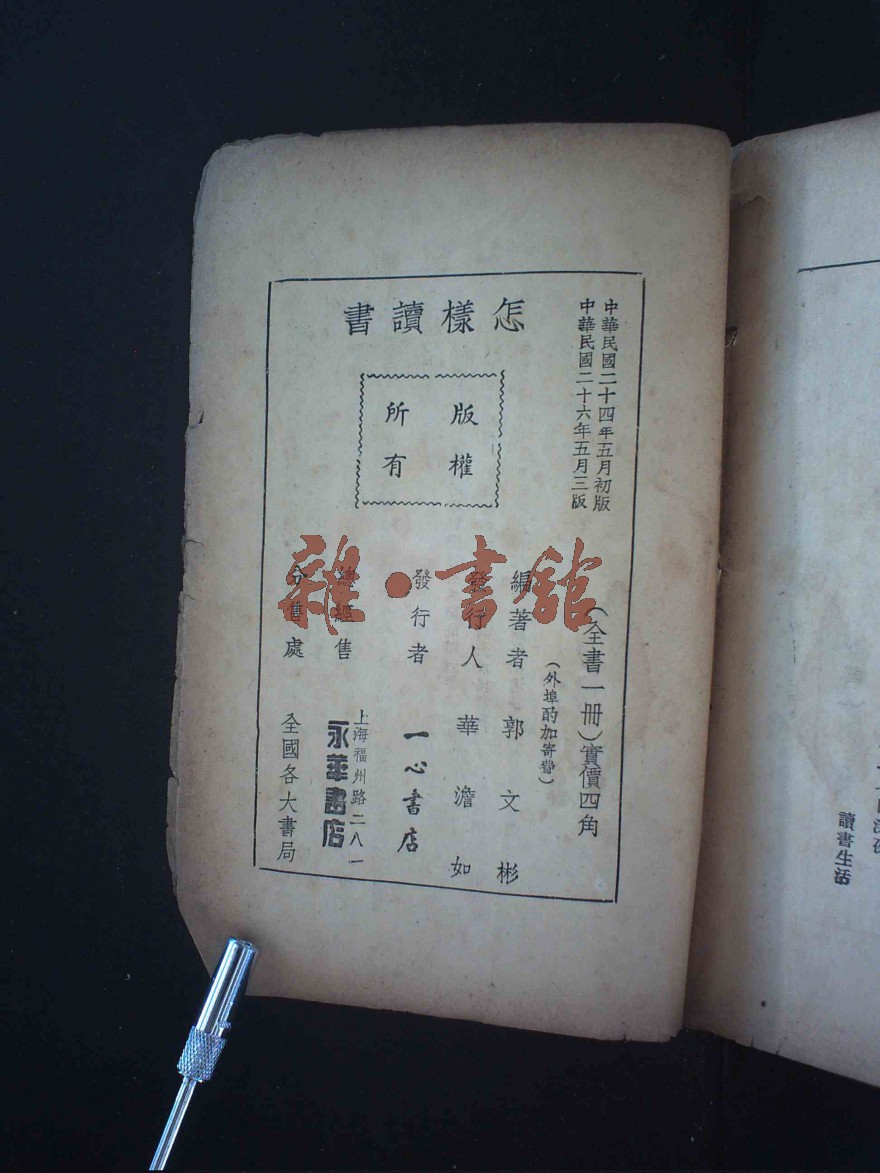 怎樣讀書
中華民國二十四年五月初版
中華民國二十六年五月三版
版權
所有
(全書一冊)實價四角
(外埠酌加寄費)
編著者 郭文彬
發行人 華澹如
發行者 一心書店
總經售 上海福州路二八一
永華書店
分售處 全國各大書局
雜·書館
讀書生活